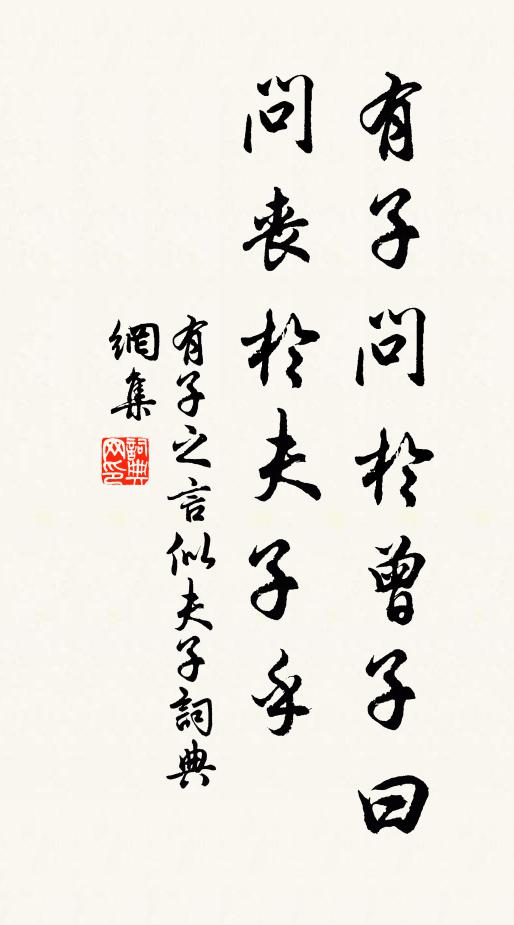 有子問於曾子曰
問喪於夫子乎
有子之言似夫子詞典
網集
詞典
网印